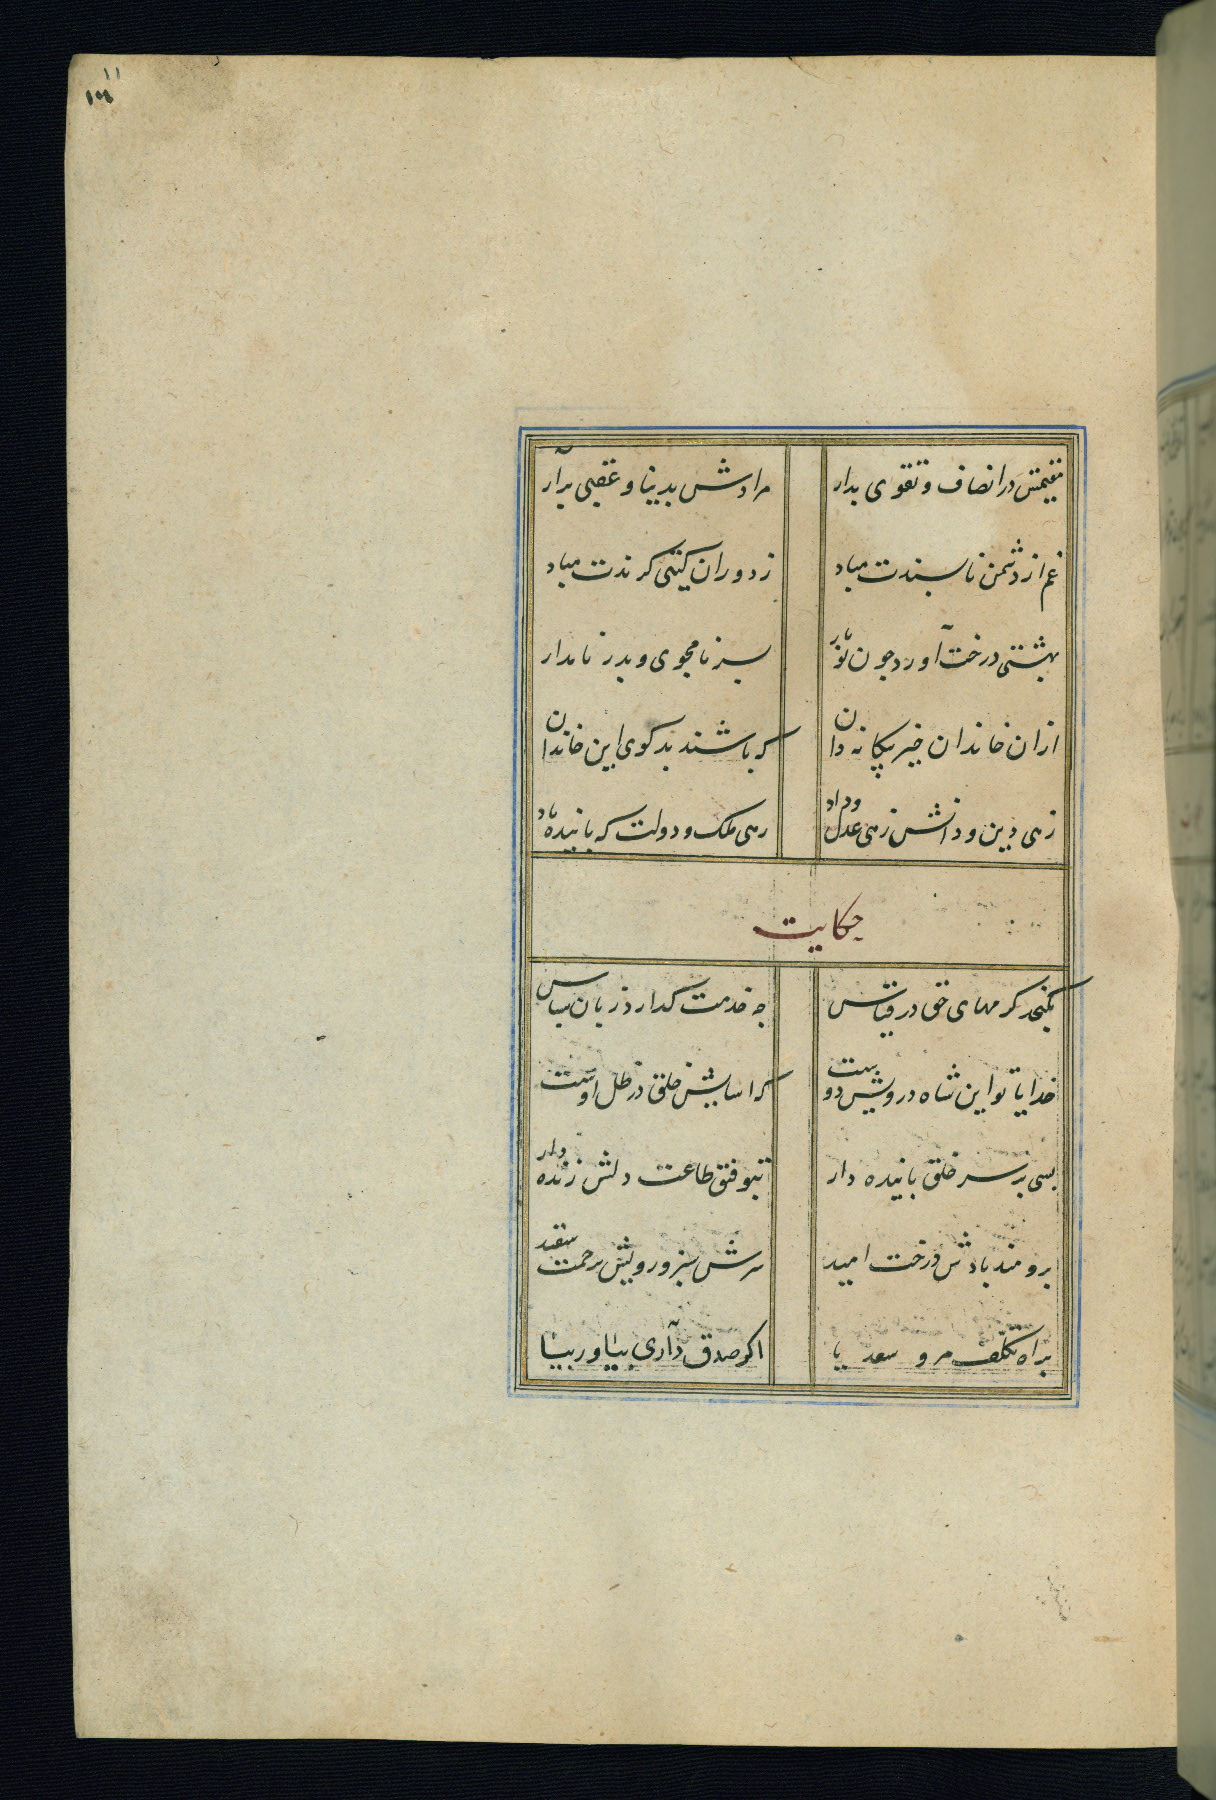 ۱۱
۱۰۶
مقیمش در انصاف و تقوی بدار مرادش بدنیا و عقبی برآر
غم از دشمن ناپسندت مباد ز دوران کیتی کزندت مباد
بهشتی درخت آورد جون تو بار پسر نامجوی و پدر نامدار
ازان خاندان خیر بیکانه دان که باشند بدکوی این خاندان
زهی دین و دانش زهی عدل و داد زهی ملک و دولت که پاینده باد
حکایت
نکنجد کرمهای حق در قیاس جه خدمت کدارد زبان سپاس
خدایا تو این شاه درویش دوست که اسایش خلق در ظل اوست
بسی بر سر خلق پاینده دار بتوفیق طاعت دلش زنده دار
برومند بادش درخت امید سرش سبز و رویش برحمت سفید
براه تکلف مرو سعدیا اکر صدق داری بیاور بیا